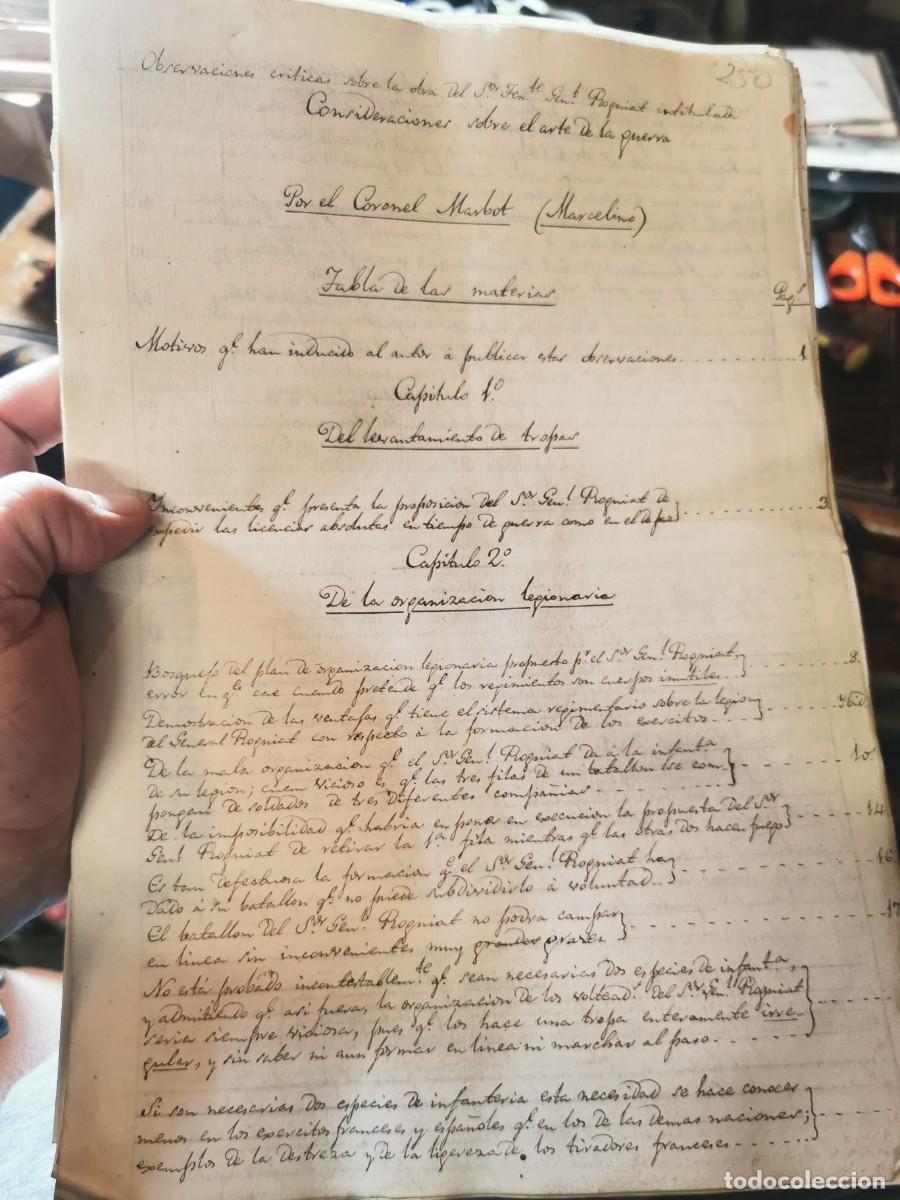 250
Observaciones criticas sobre la obra del S.or Ten.te Gen.l Rogniat intitulada
Consideraciones sobre el arte de la guerra
Por el Coronel Marbot (Marcelino)
Tabla de las materias
Pag.s
Motivos q.e han inducido al autor à publicar estas observaciones 1
Capitulo 1.o
Del levantamiento de tropas
Inconvenientes q.e presenta la proposicion del S.or Gen.l Rogniat de
espedir las licencias absolutas en tiempo de guerra como en el de paz 3
Capitulo 2.o
De la organizacion legionaria
Bosquejo del plan de organizacion legionaria propuesto p.r el S.or Gen.l Rogniat,
error en q.e cae cuando pretende q.e los regimientos son cuerpos inutiles 8.
Demostracion de las ventajas q.e tiene el sistema regimentario sobre la legion
del General Rogniat con respecto à la formacion de los exercitos Ibid
De la mala organizacion q.e el S.or Gen.l Rogniat da à la infant.a
de su legion; cuan vicioso es q.e las tres filas de un batallon se com-
pongan de soldados de tres diferentes compañias 10.
De la imposibilidad q.e habria en poner en execucion la propuesta del S.or
Gen.l Rogniat de retirar la 1.a fila mientras q.e las otras dos hacen fuego 14
Es tan defectuosa la formacion q.e el S.or Gen.l Rogniat ha
dado à su batallon q.e no puede subdividirlo à voluntad 16
El batallon del S.or Gen.l Rogniat no podra campar
en linea sin inconvenientes muy grandes graves 17
No está probado incontestablem.te q.e sean necesarias dos especies de infant.a,
y admitiendo q.e asi fuera, la organizacion de los voltead.s del S.or Gen.l Rogniat
seria siempre viciosa, pues q.e los hace una tropa enteramente irre-
gular, y sin saber ni aun formar en linea ni marchar al paso
Si son necesarias dos especies de infanteria esta necesidad se hace conocer
menos en los exercitos franceses y españoles q.e en los de las demas naciones;
exemplos de la destreza y de la ligereza de los tiradores franceses
todocoleccion